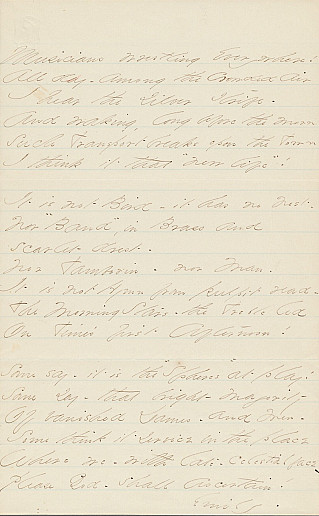 Musicians wrestling Everywhere!
All day - Among the Crowded Air
I hear the Silver Strife -
And waking, long before the morn
Such Transport breaks upon the Town
I think it that "New life"!
It is not Bird - it has no nest -
Nor "Band", in Brass and
Scarlet drest -
Nor Tamborin - nor Man -
It is not Hymn from pulpit read -
The Morning Stars - the Treble led
On Time's first Afternoon!
Some say - it is the "Spheres" at play!
Some say - that bright Majority
Of vanished Dames - and Men -
Some think it service in the place
Where we - with late - celestial face
Please God - shall ascertain!
Emily -